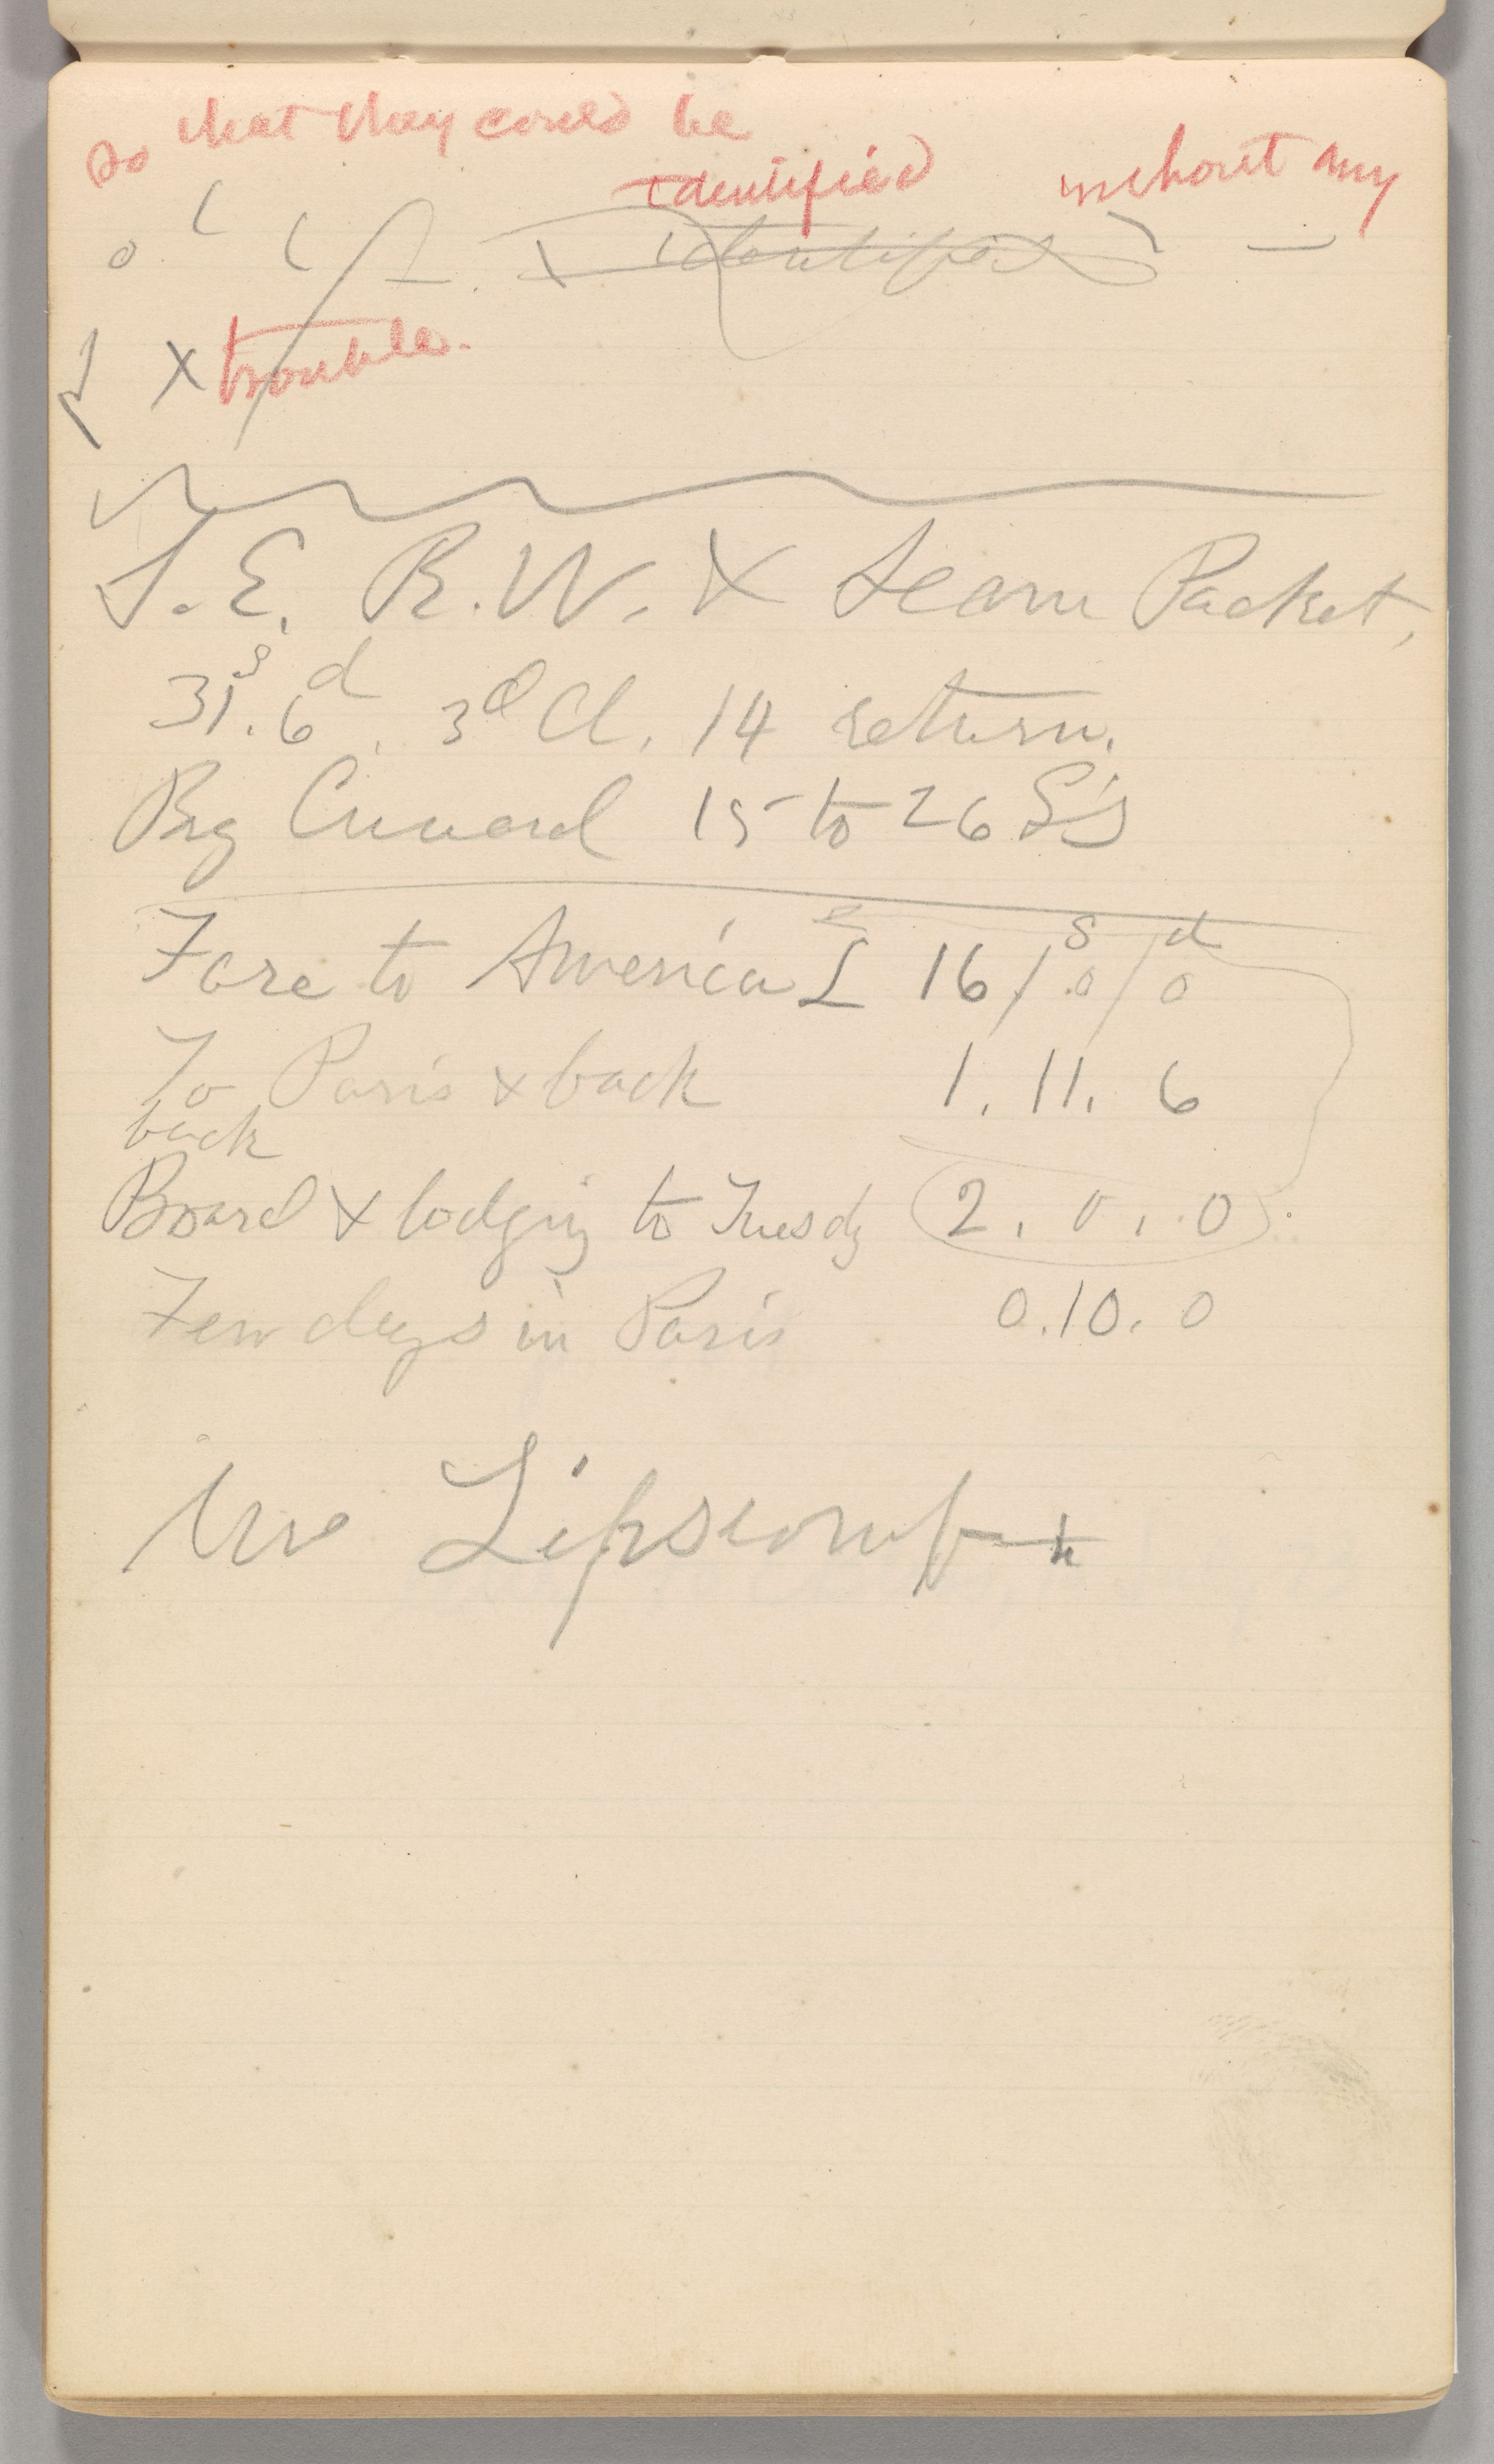 so that they could be
identified without any
identified
x trouble.
S. E. R. W. & Steam Packet,
31s. 6d. 3d Cl. 14 return.
By Cunard 15 to 26 £'s
Fare to America £ 16/ 0s/ 0d
To Paris & back 1. 11. 6
back
Board & lodging to Tuesdy 2. 0. 0.
Few days in Paris 0. 10. 0
Mrs Lipscomb